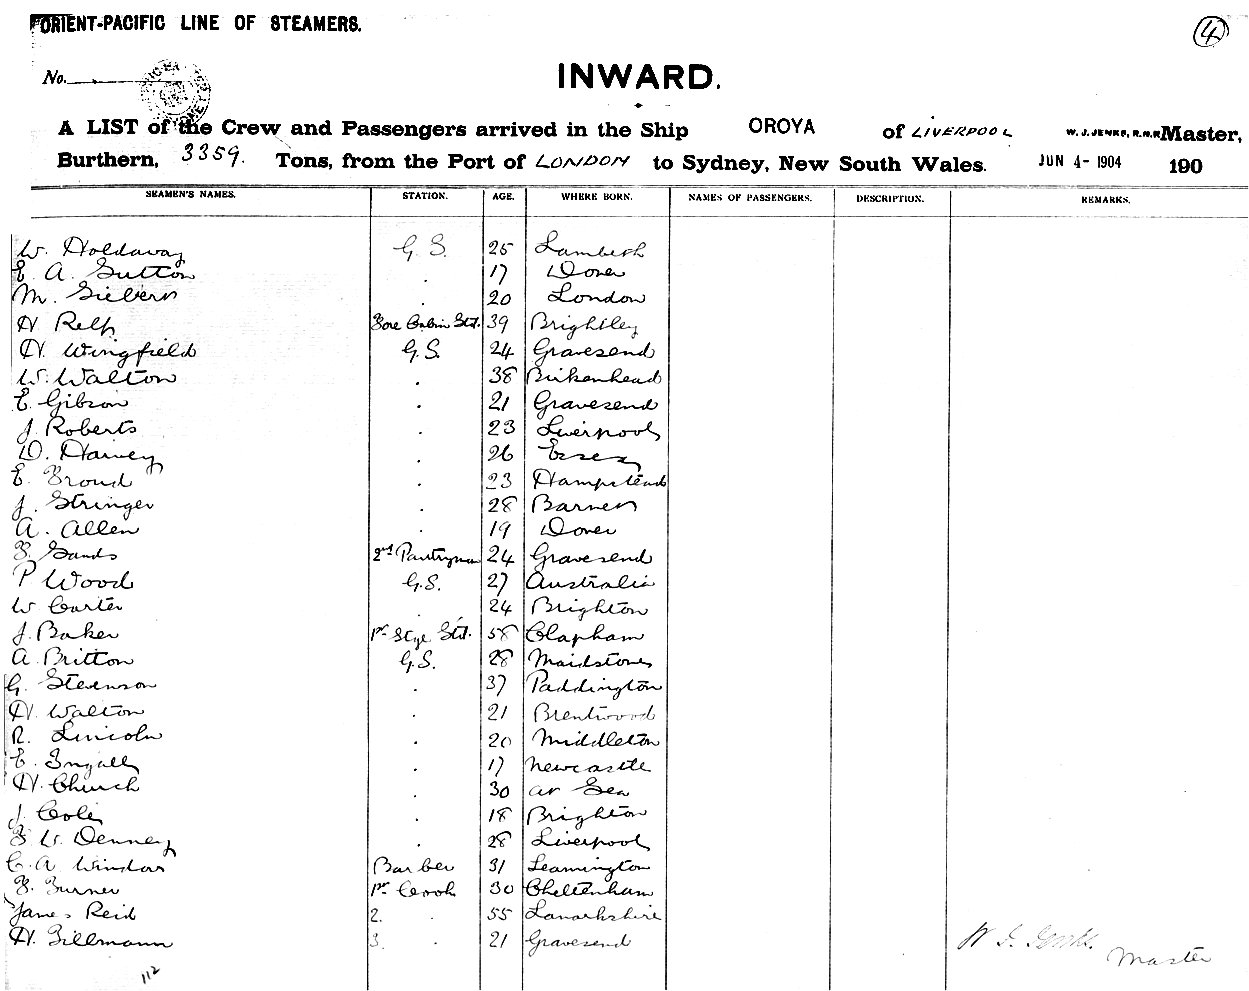 ORIENT-PACIFIC LINE OF STEAMERS.
4
No.
INWARD.
A LIST of the Crew and Passengers arrived in the Ship OROYA of LIVERPOOL W. J. JENKS, R.N.R. Master,
Burthern, 3359. Tons, from the Port of LONDON to Sydney, New South Wales. JUN 4- 1904 190
SEAMEN'S NAMES. STATION. AGE. WHERE BORN. NAMES OF PASSENGERS. DESCRIPTION. REMARKS.
W. Holdaway G.S. 25 Lambeth
E. A. Sutton . 17 Dover
M. . 20 London
H Relf Fore Cabin Std. 39
H. Wingfield G.S. 24 Gravesend
W. Walton . 38 Birkenhead
E. Gibson . 21 Gravesend
J. Roberts . 23 Liverpool
D. Harvey . 26 Essex
E. Froud . 23 Hampstead
J. Stringer . 28 Barnes
A. Allen . 19 Dover
F. Sands 2nd Pantryman 24 Gravesend
P Wood G.S. 27 Australia
W Carter . 24 Brighton
J. Baker 1st Stge Std. 58 Clapham
A. Britton G.S. 28 Maidstone
G. Stevenson . 37 Paddington
H. Walton . 21 Brentwood
R. Lincoln . 20 Middleton
E. Ingall . 17 Newcastle
H. Church . 30 at Sea
J. Cole . 18 Brighton
F W. Denney . 28 Liverpool
C. A. Windows Barber 31 Leamington
F. Turner 1st Cook 30 Cheltenham
James Reid 2. . 55 Lanarkshire
H. Tillmann 3. . 21 Gravesend
W J. Jenks.
Master
112